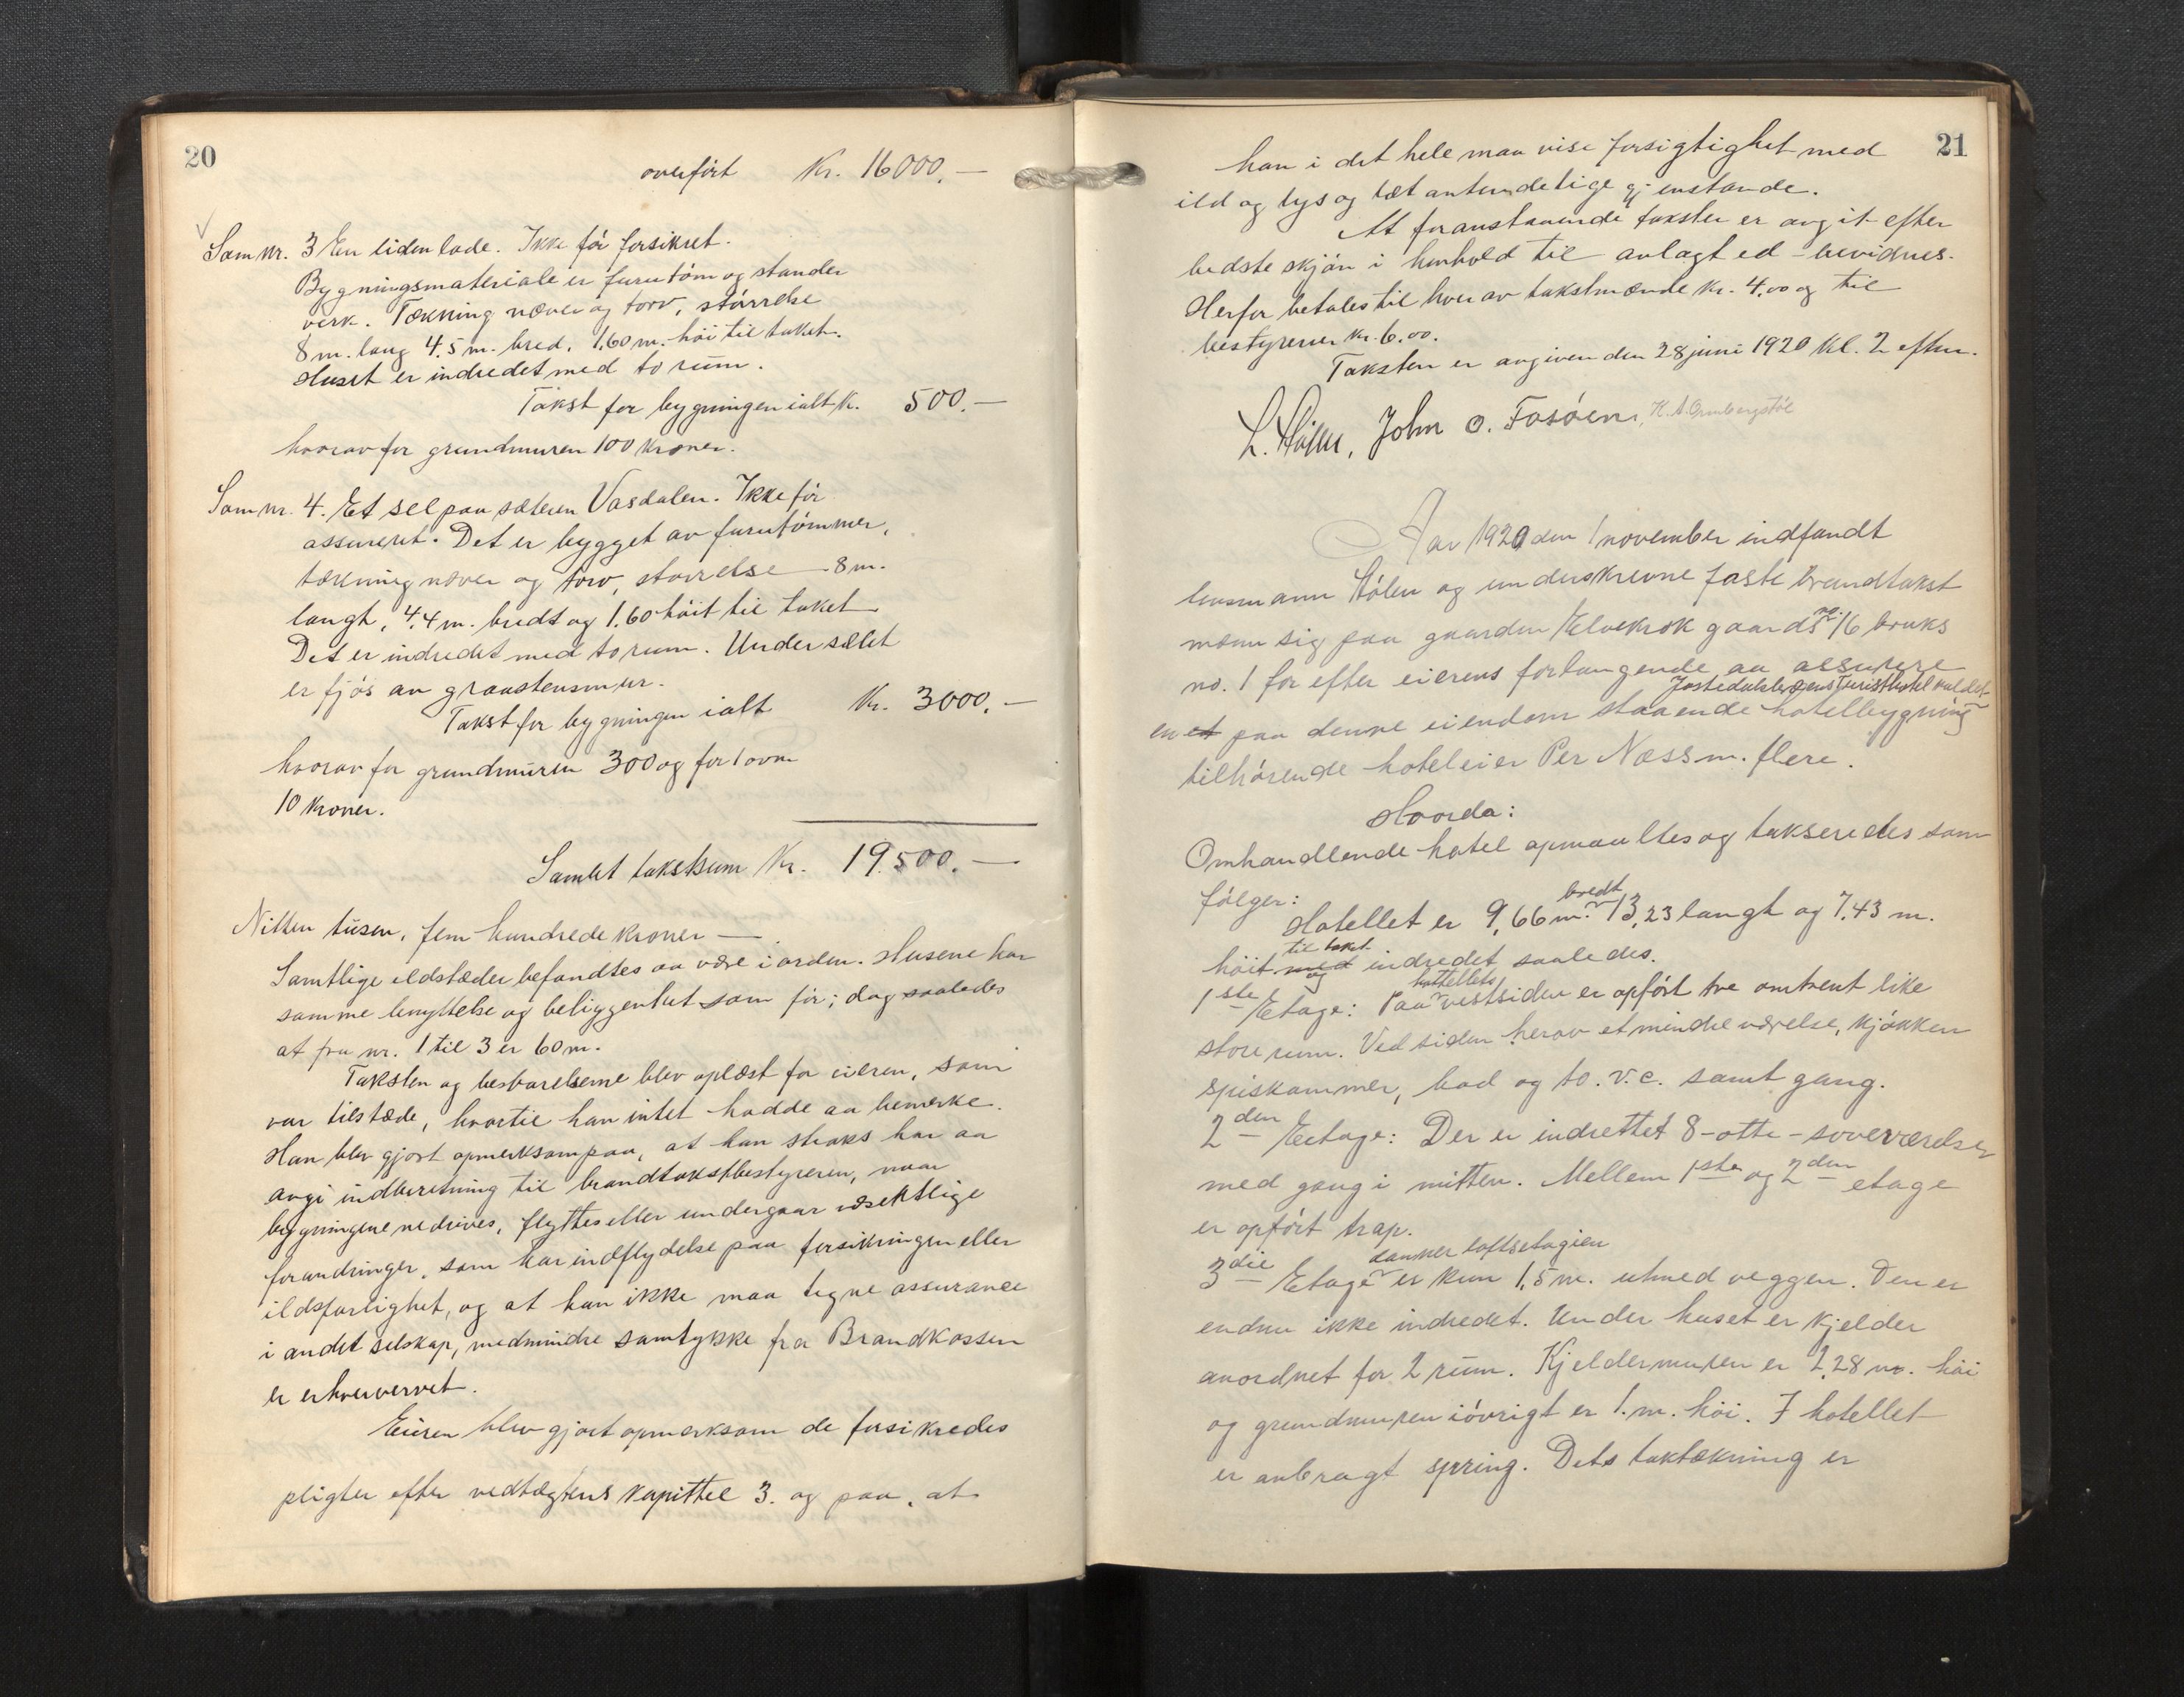 20
overført Kr. 16000.—
Som nr. 3 En liden lade. Ikke før forsikret.
Bygningsmateriale er furutøm og stander
verk. Tækning næver og torv, størrelse
8 m. lang 4.5 m. bred. 1.60 m. høi til taket.
Huset er indredet med to rum.
Takst for bygningen ialt k. 500.—
hvorav for grundmuren 100 kroner.
Som nr. 4. Et sel paa sæteren Vasdalen. Ikke før
assureret. Det er bygget av furutømmer,
tækning næver og torv, størrelse 8 m.
langt, 4.4 m. bredt og 1.60 høit til taket
Det er indredet med to rum. Under sælet
er fjøs av graastensmur.
Takst for bygningen ialt Kr. 3000.—
hvorav for grundmuren 300 og for 1 ovn
10 kroner.
Samlet takstsum Kr. 19.500.—
Nitten tusen, fem hundrede kroner —
Samtlige ildstæder befandtes aa være i orden. Husene har
samme benyttelse og beliggenhet som før; dog saaledes
at fra nr. 1 til 3 er 60 m.
Taksten og besvarelserne blev oplæst for eieren, som
var tilstæde, hvortil han intet hadde aa bemerke.
Han blev gjort opmerksom paa, at han straks har aa
avgi indberetning til brandtakstbestyreren, naar
bygningene nedrives, flyttes eller undergaar væsentlige
forandringer, som har indflydelse paa forsikringen eller
ildsfarlighet, og at han ikke maa tegne assurance
i andet selskap, medmindre samtykke fra Brandkassen
er erhververvet.
Eieren blev gjort opmerksom de forsikredes
pligter efter vedtægtens kapittel 3. og paa, at
21
han i det hele maa vise forsigtighet med
ild og lys og let antendelige gjenstande.
At foranstaaende takster er avgit efter
bedste skjøn i henhold til avlagt ed – bevidnes.
Herfor betales til hver av takstmænde kr. 4.00 og til
bestyreren kr. 6.00.
Taksten er avgiven den 28 juni 1920 kl. 2 efterm.
John O. Fosøen,
Aar 1920 den 1 november indfandt
lensmann Hølen og underskrevne faste brandtakst
mænn sig paa gaarden Elvekrok gaards nr. 16 bruks
no. 1 for efter eierens forlangende aa assurere
Jostedalsbræens Turisthotel kaldet
en et paa denne eiendom staaende hotelbygning
tilhørende hoteleier Per Næss m. flere.
Hvorda:
Omhandlende hotel opmaaltes og takseredes som
følger:
bredt
Hotellet er 9,66 m. 13,23 langt og 7.43 m.
til taket
høit med og indredet saaledes.
hottellets
1ste Etage: Paa vestsiden er opført tre omtrent like
store rum. Ved siden herav et mindre værelse, kjøkken
spiskammer, bad og to. v.c. samt gang.
2den Etage: Der er indrettet 8 – otte – soveværelser
med gang i mitten. Mellem 1ste og 2den etage
er opført trap.
danner loftsetagien
3die Etage er kun 1,5 m. utmed veggen. Den er
endnu ikke indredet. Under huset er kjelder
anordnet for 2 rum. Kjeldermuren er 2,28 m. høi
og grundmuren iøvrigt er 1. m. høi. I hotellet
er anbragt spring. Dets taktækning er